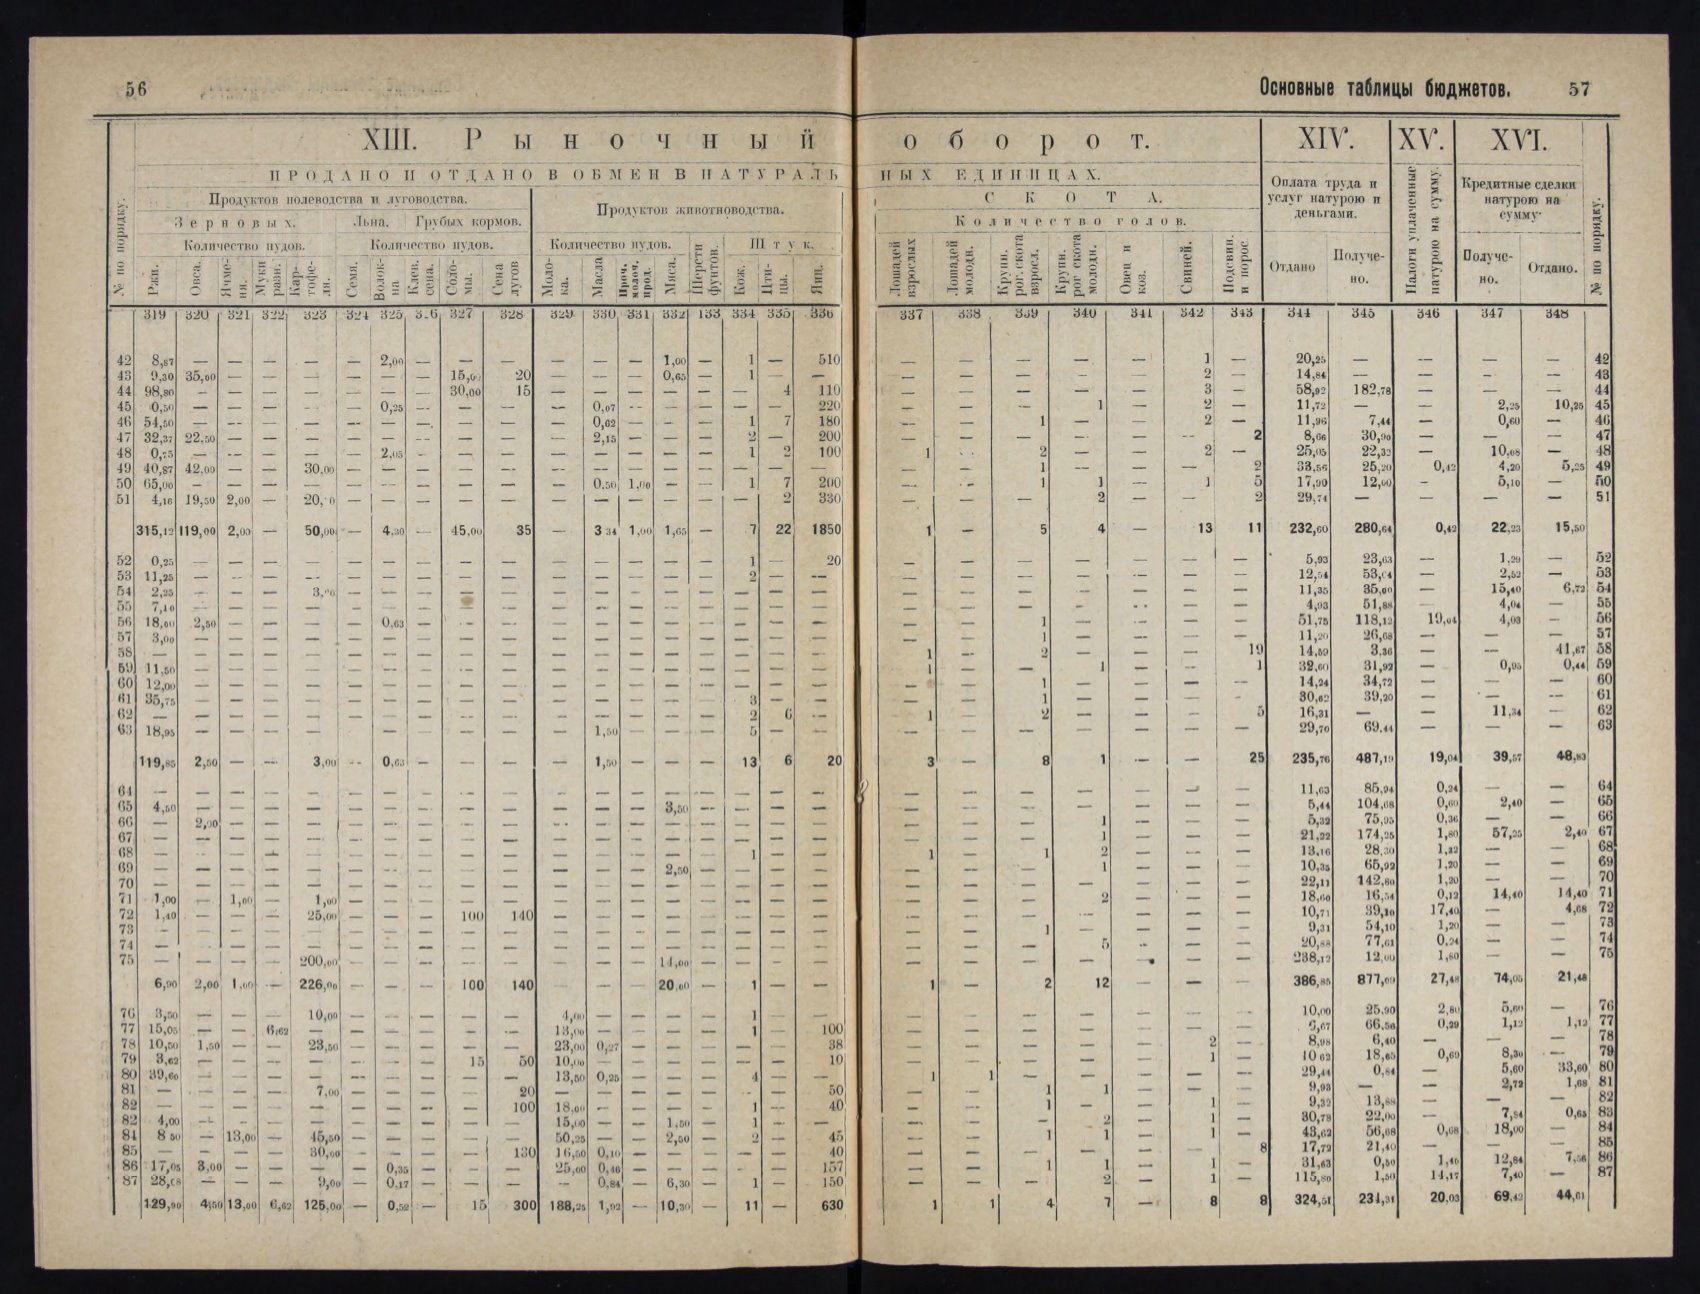 56
XIII. Рыночный
ПРОДАНО И ОТДАНО В ОБМЕН В НАТУРАЛЬ
Продуктов полеводства и луговодства.
Продуктов животноводства.
Зерновых. Льна. Грубых кормов.
Количество пудов. Количество пудов. Количество пудов. Штук.
№ по порядку. Ржи. Овса. Ячменя. Муки ржан. Картофеля. Семя. Волокна Клев. сена. Соломы. Сена лугов Молока. Масла Проч. молоч. прод. Мяса. Шерсти фунтов. Кож. Птицы. Яиц.
319 320 321 322 323 324 325 326 327 328 329 330 331 332 133 334 335 336
42 8,87 — — — — — 2,00 — — — — — — 1,00 — 1 — 510
43 9,30 35,00 — — — — — — 15,00 20 — — — 0,65 — 1 — —
44 98,80 — — — — — — — 30,00 15 — — — — — — 4 110
45 0,50 — — — — — 0,25 — — — — 0,07 — — — — — 220
46 54,50 — — — — — — — — — — 0,62 — — — 1 7 180
47 32,37 22,50 — — — — — — — — — 2,15 — — — 2 — 200
48 0,75 — — — — — 2,05 — — — — — — — — 1 2 100
49 40,87 42,00 — — 30,00 — — — — — — — — — — — — —
50 65,00 — — — — — — — — — — 0,50 1,00 — — 1 7 200
51 4,16 19,50 2,00 — 20,00 — — — — — — — — — — — 2 330
315,12 119,00 2,00 — 50,00 — 4,30 — 45,00 35 — 3 34 1,00 1,65 — 7 22 1850
52 0,25 — — — — — — — — — — — — — — 1 — 20
53 11,25 — — — — — — — — — — — — — — 2 — —
54 2,25 — — — 3,00 — — — — — — — — — — — — —
55 7,10 — — — — — — — — — — — — — — — — —
56 18,00 2,50 — — — — 0,63 — — — — — — — — — — —
57 3,00 — — — — — — — — — — — — — — — — —
58 — — — — — — — — — — — — — — — — — —
59 11,50 — — — — — — — — — — — — — — — — —
60 12,00 — — — — — — — — — — — — — — — — —
61 35,75 — — — — — — — — — — — — — — 3 — —
62 — — — — — — — — — — — — — — — 2 6 —
63 18,95 — — — — — — — — — — 1,50 — — — 5 — —
119,85 2,50 — — 3,00 — 0,63 — — — — 1,50 — — — 13 6 20
64 — — — — — — — — — — — — — — — — — —
65 4,50 — — — — — — — — — — — — 3,50 — — — —
66 — 2,00 — — — — — — — — — — — — — — — —
67 — — — — — — — — — — — — — — — — — —
68 — — — — — — — — — — — — — — — 1 — —
69 — — — — — — — — — — — — — 2,50 — — — —
70 — — — — — — — — — — — — — — — — — —
71 1,00 — 1,00 — 1,00 — — — — — — — — — — — — —
72 1,40 — — — 25,00 — — — 100 140 — — — — — — — —
73 — — — — — — — — — — — — — — — — — —
74 — — — — — — — — — — — — — — — — — —
75 — — — — 200,00 — — — — — — — — 14,00 — — — —
6,90 2,00 1,00 — 226,00 — — — 100 140 — — — 20,00 — 1 — —
76 3,50 — — — 10,00 — — — — — 4,00 — — — — 1 — —
77 15,05 — — 6,62 — — — — — — 13,00 — — — — 1 — 100
78 10,50 1,50 — — 23,50 — — — — — 23,00 0,27 — — — — — 38
79 3,62 — — — — — — — 15 50 10,00 — — — — — — 10
80 39,60 — — — — — — — — — 13,50 0,25 — — — 4 — —
81 — — — — 7,00 — — — — 20 — — — — — — — 50
82 — — — — — — — — — 100 18,00 — — — — 1 — 40
82 4,00 — — — — — — — — — 15,00 — — 1,50 — 1 — —
84 8 50 — 13,00 — 45,50 — — — — — 50,25 — — 2,50 — 2 — 45
85 — — — — 30,00 — — — — 130 16,50 0,10 — — — — — 40
86 17,05 3,00 — — — — 0,35 — — — 25,00 0,46 — — — — — 157
87 28,08 — — — 9,00 — 0,17 — — — — 0,84 — 6,30 — 1 — 150
129,90 4,50 13,00 6,62 125,00 — 0,52 — 15 300 188,25 1,92 — 10,30 — 11 — 630
Основные таблицы бюджетов. 57
оборот. XIV. XV. XVI.
НЫХ ЕДИНИЦАХ.
СКОТА.
Количество голов.
Оплата труда и услуг натурою и деньгами.
Налоги уплаченные натурою на сумму.
Кредитные сделки натурою на сумму
Лошадей взрослых Лошадей молодн. Крупн. рог. скота взросл. Крупн. рог скота молодн. Овец и коз. Свиней. Подсвин. и порос. Отдано Получено. Получено. Отдано. № по порядку.
337 338 339 340 341 342 343 344 345 346 347 348
— — — — — 1 — 20,25 — — — — 42
— — — — — 2 — 14,84 — — — — 43
— — — — — 3 — 58,92 182,78 — — — 44
— — — 1 — 2 — 11,72 — — 2,25 10,25 45
— — 1 — — 2 — 11,96 7,44 — 0,60 — 46
— — — — — — 2 8,66 30,90 — — — 47
1 — 2 — — 2 — 25,05 22,32 — 10,08 — 48
— — 1 — — — 2 33,56 25,20 0,42 4,20 5,25 49
— — 1 1 — 1 5 17,90 12,00 — 5,10 — 50
— — — 2 — — 2 29,74 — — — — 51
1 — 5 4 — 13 11 232,60 280,64 0,42 22,23 15,50
— — — — — — — 5,93 23,63 — 1,20 — 52
— — — — — — — 12,54 53,04 — 2,52 — 53
— — — — — — — 11,35 35,00 — 15,40 6,72 54
— — — — — — — 4,93 51,88 — 4,04 — 55
— — 1 — — — — 51,75 118,12 19,04 4,03 — 56
— — 1 — — — — 11,20 26,68 — — — 57
1 — 2 — — — 19 14,59 3,36 — — 41,67 58
1 — — 1 — — 1 32,60 31,92 — 0,95 0,44 59
— — 1 — — — — 14,24 34,72 — — — 60
— — 1 — — — — 30,62 39,20 — — — 61
1 — 2 — — — 5 16,31 — — 11,34 — 62
— — — — — — — 29,70 69,44 — — — 63
3 — 8 1 — — 25 235,76 487,19 19,04 39,57 48,83
— — — — — — — 11,63 85,94 0,24 — — 64
— — — — — — — 5,44 104,68 0,60 2,40 — 65
— — — 1 — — — 5,32 75,95 0,36 — — 66
— — — 1 — — — 21,22 174,25 1,80 57,25 2,40 67
1 — 1 2 — — — 13,16 28,30 1,32 — — 68
— — — 1 — — — 10,35 65,92 1,20 — — 69
— — — — — — — 22,11 142,80 1,20 — — 70
— — — 2 — — — 18,60 16,54 0,12 14,40 14,40 71
— — — — — — — 10,71 39,10 17,40 — 4,68 72
— — 1 — — — — 9,31 54,10 1,20 — — 73
— — — 5 — — — 20,88 77,61 0,24 — — 74
— — — — — — — 238,12 12,00 1,80 — — 75
1 — 2 12 — — — 386,85 877,09 27,48 74,05 21,48
— — — — — — — 10,00 25,90 2,80 5,60 — 76
— — — — — — — 9,67 66,56 0,29 1,12 1,12 77
— — — — — 2 — 8,98 6,40 — — — 78
— — — — — 1 — 10 62 18,65 0,69 8,30 — 79
1 1 — — — — — 29,44 0,84 — 5,60 33,60 80
— — 1 1 — — — 9,93 — — 2,72 1,68 81
— — 1 — — 1 — 9,32 13,88 — — — 82
— — — 2 — 1 — 30,78 22,00 — 7,84 0,65 83
— — 1 1 — 1 — 43,62 56,68 0,68 18,00 — 84
— — — — — — 8 17,72 21,40 — — — 85
— — 1 1 — 1 — 31,63 0,50 1,46 12,84 7,56 86
— — — 2 — 1 — 115,80 1,50 14,17 7,40 — 87
1 1 4 7 — 8 8 324,51 234,31 20,03 69,42 44,61